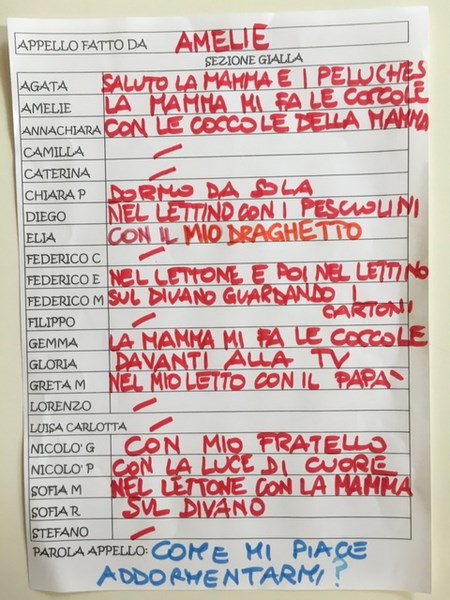 APPELLO FATTO DA AMELIE
SEZIONE GIALLA
AGATA SALUTO LA MAMMA E I PELUCHES
AMELIE LA MAMMA MI FA LE COCCOLE
ANNACHIARA CON LE COCCOLE DELLA MAMMA
CAMILLA
CATERINA
CHIARA P DORMO DA SOLA
DIEGO NEL LETTINO CON I PESCIOLINI
ELIA CON IL MIO DRAGHETTO
FEDERICO C
FEDERICO E NEL LETTONE E POI NEL LETTINO
FEDERICO M SUL DIVANO GUARDANDO I
CARTONI
FILIPPO
GEMMA LA MAMMA MI FA LE COCCOLE
GLORIA DAVANTI ALLA TV
GRETA M NEL MIO LETTO CON IL PAPA'
LORENZO
LUISA CARLOTTA
NICOLO' G CON MIO FRATELLO
NICOLO' P CON LA LUCE DI CUORE
SOFIA M NEL LETTONE CON LA MAMMA
SOFIA R SUL DIVANO
STEFANO
PAROLA APPELLO: COME MI PIACE
ADDORMENTARMI?